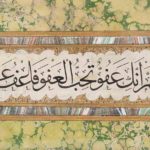 انك عفو تحب العفو فاعف